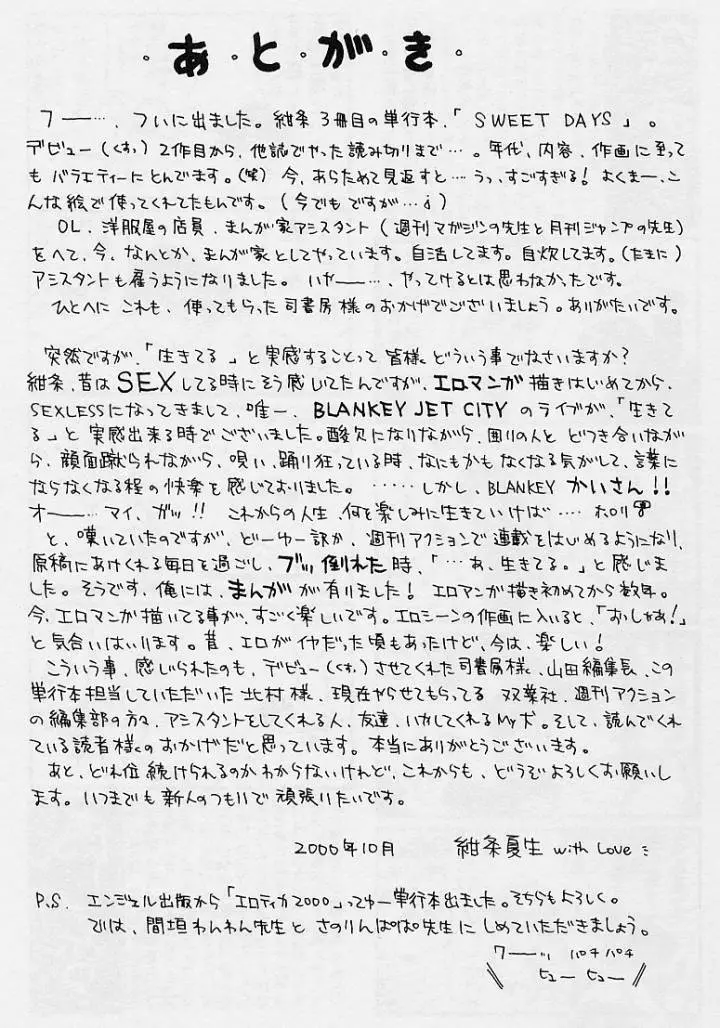 ・あ・と・が・き・
フー…、ついに出ました。紺条3冊目の単行本、「SWEET DAYS」。
デビュー(くすっ)2作目から、他誌でやった読み切りまで…。年代、内容、作画に至って
も バラエティーにとんでます。(笑) 今、あらためて見返すと…うっ、すごすぎる! よくまー、こ
んな絵で使ってくれてたもんです。(今でもですが…;)
OL、洋服屋の店員、まんが家アシスタント(週刊マガジンの先生と月刊ジャンプの先生)
をへて、今、なんとか、まんが家としてやっています。自活してます。自炊してます。(たまに)
アシスタントも雇うようになりました。いやー…、やってけるとは思わなかったです。
ひとへに これも、使ってもらった司書房様のおかげでございましょう。ありがたいです。
突然ですが、「生きてる」と実感することって皆様、どういう事でなさいますか?
紺条、昔はSEXしてる時にそう感じてたんですが、エロマンガ描きはじめてから、
SEXLESSになってきまして、唯一、BLANKEY JET CITY のライブが、「生きて
る」と実感出来る時でございました。酸欠になりながら、囲りの人と どつき合いなが
ら、顔面蹴られながら、唄い、踊り狂っている時、なにもかもなくなる気がして、言葉に
ならなくなる程の快楽を感じておりました。……しかし、BLANKEY かいさん!!
オー…マイ、ガッ!! これからの人生、何を楽しみに生きていけば…. ホロリ
と、嘆いていたのですが、どーゆー訳か、週刊アクションで連載をはじめるようになり、
原稿にあけくれる毎日を過ごし、ブッ倒れた時、「…あ、生きてる。」と感じま
した。そうです、俺には、まんがが有りました! エロマンが描き初めてから数年。
今、エロマンが描いてる事が、すごく楽しいです。エロシーンの作画に入いると、「おっしゃあ!」
と気合いはいります。昔、エロがイヤだった頃もあったけど、今は、楽しい!
こういう事、感じられたのも、デビュー(くすっ)させてくれた司書房様、山田編集長、この
単行本担当していただいた北村様、現在やらせてもらってる 双葉社、週刊アクション
の編集部の方々、アシスタントをしてくれる人、友達、いかしてくれるMy犬。そして、読んでくれ
ている読者様のおかげだと思っています。本当にありがとうございます。
あと、どれ位続けられるのかわからないけれど、これからも、どうぞよろしくお願いし
ます。いつまでも新人のつもりで頑張りたいです。
2000年10月 紺条夏生 with Love
P.S. エンジェル出版から「エロティカ2000」ってゆー単行本出ました。そちらもよろしく。
では、間垣わんわん先生と さのりんぱぱ先生に しめていただきましょう。
ワーッ パチパチ
ヒューヒュー